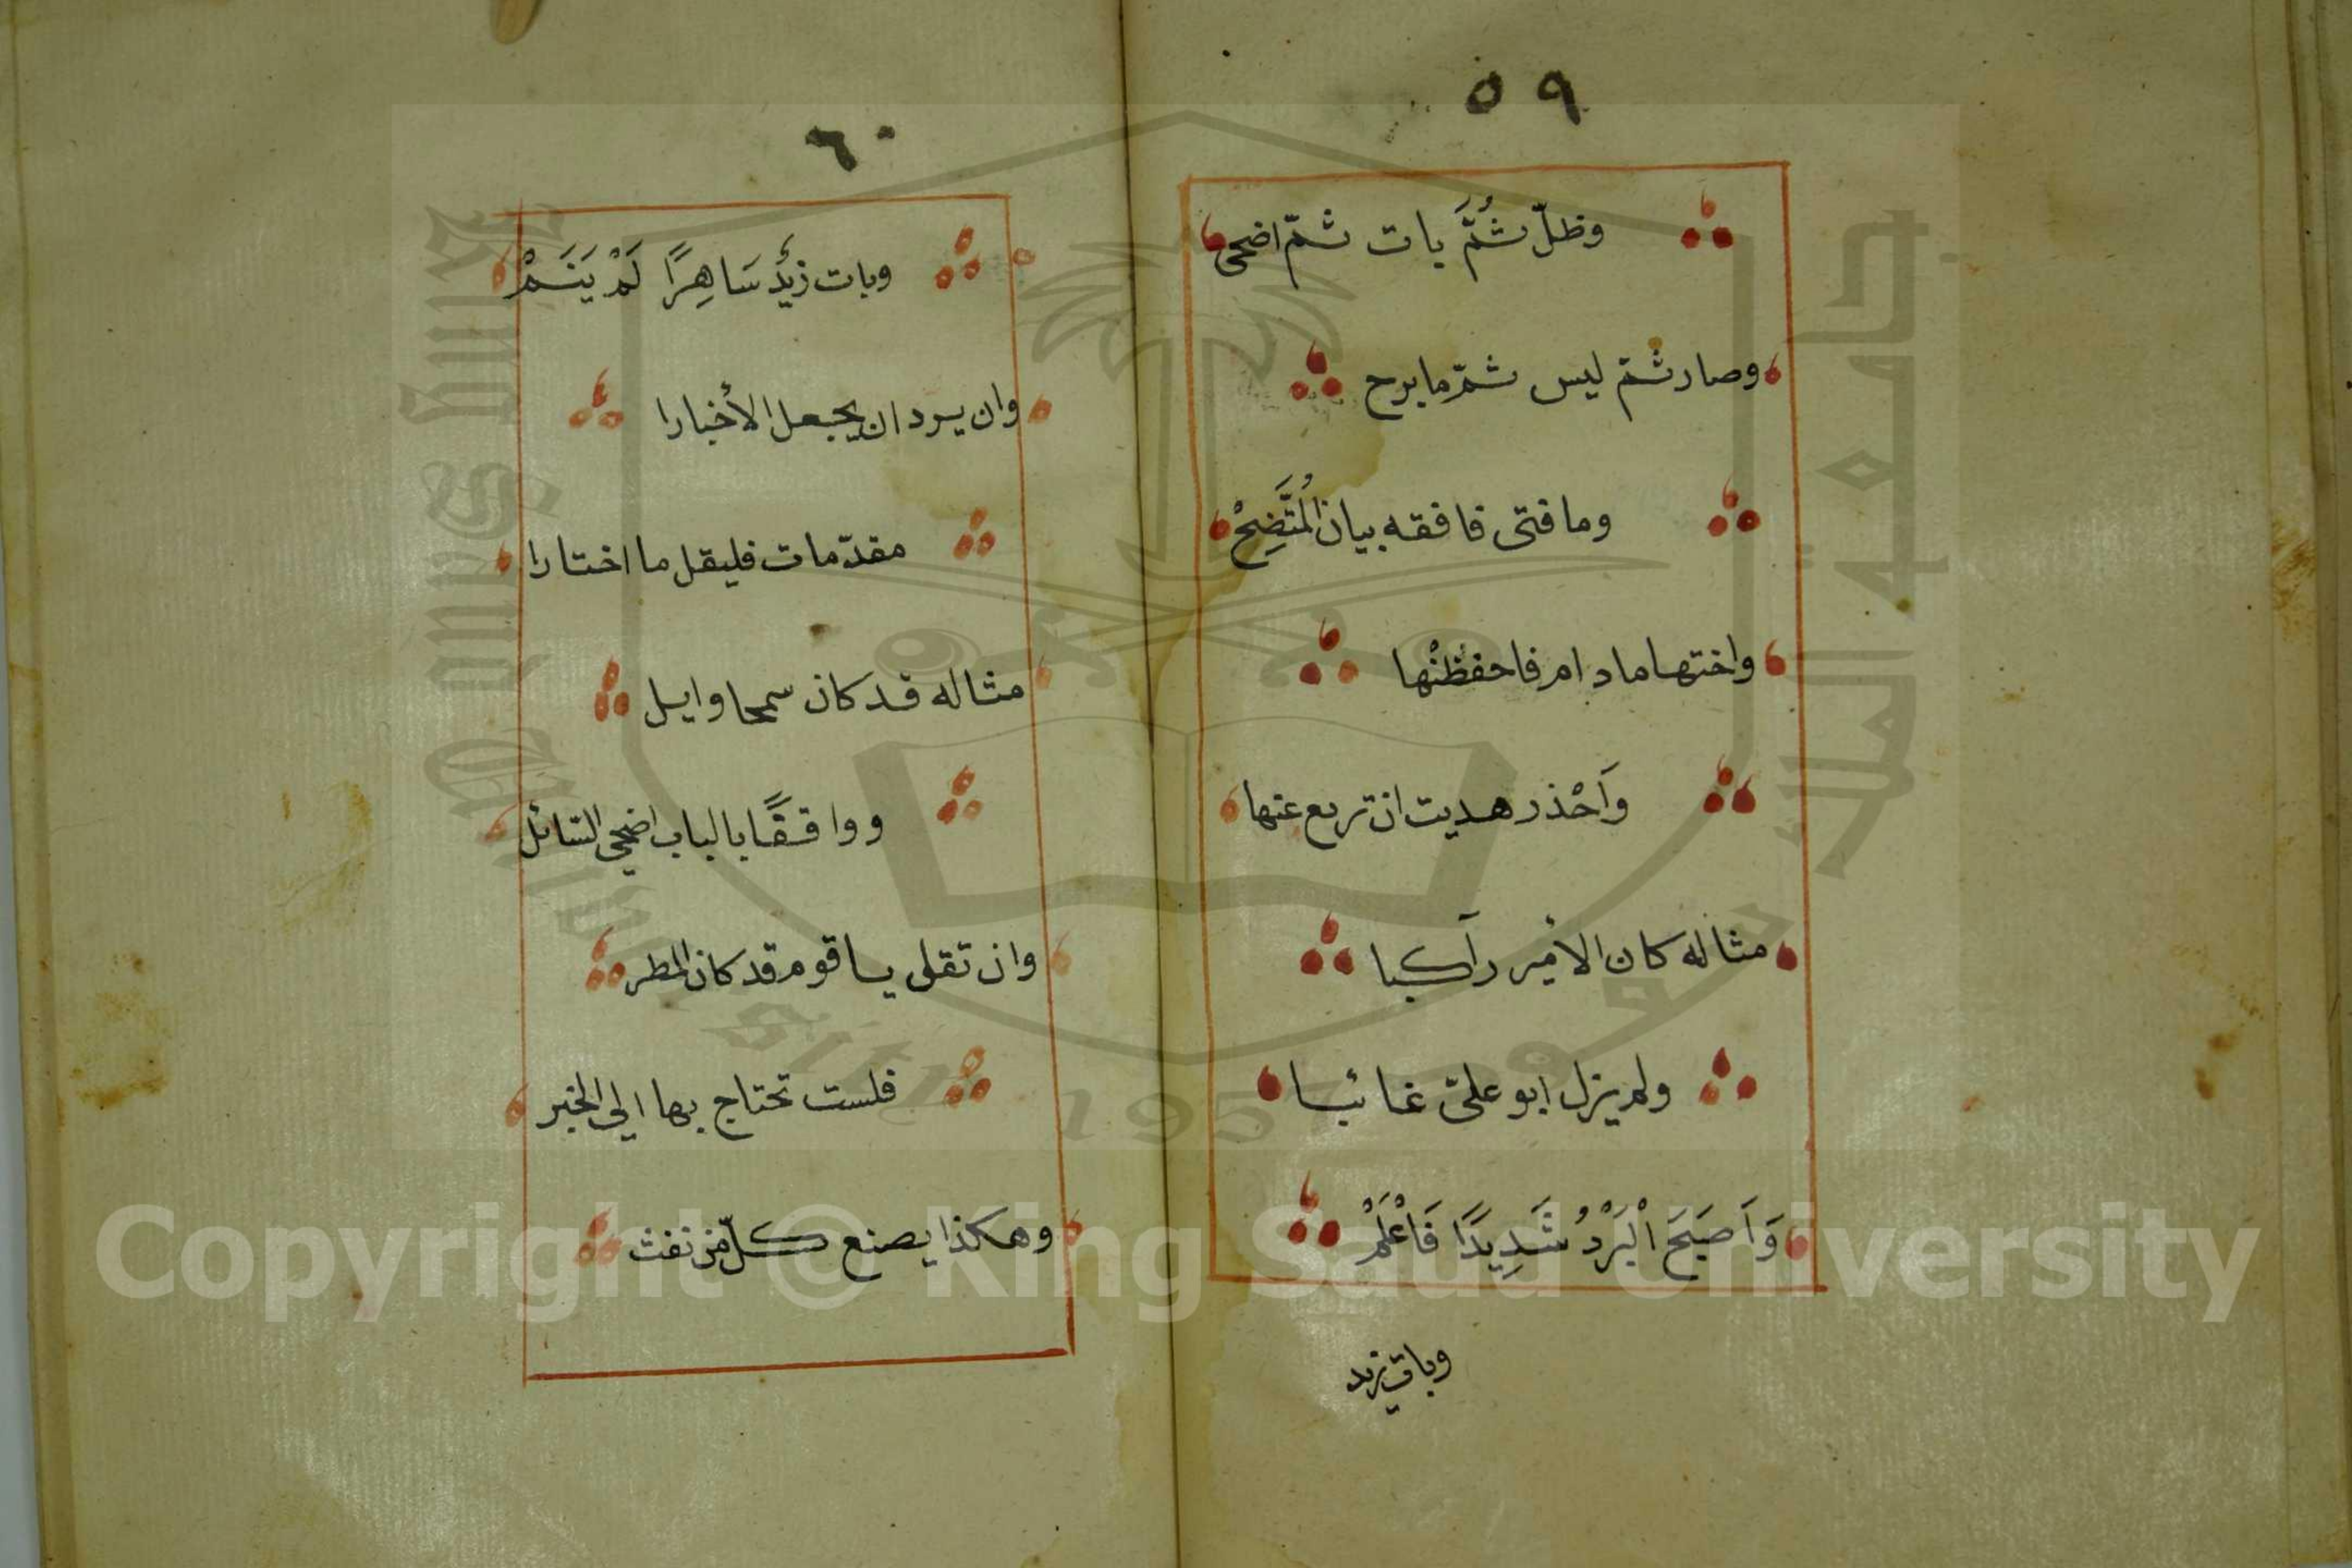 ٥٩
وظلّ ثُمَّ بات ثمّ اضحى
وصار ثمّ ليس ثمّ ما برح
وما فتى فافقه بيان المُتَّضِحْ
واختها ما دام فاحفظنْها
وَاَحْذر هديت ان تريع عنها
مثاله كان الأمير رَاكبا
ولم يزل ابو علىّ غائبا
وَاَصبَحَ الْبَرْدُ شَدِيدًا فَاعْلَمْ
وبات زيد
٦٠
وبات زيْدٌ سَاهِرًا لَمْ يَنَمْ
وان يرد ان يجعل الأخبارا
مقدّمات فليقل ما اختارا
مثاله قد كان سمحا وايل
وواقفًا بالباب اضحى السّائل
وان تقل يا قوم قد كان المطر
فلست تحتاج بها الى الخبر
وهكذا يصنع كلّ من نفث
جامعة الملك سعود
King Saud University
1957
Copyright © King Saud University